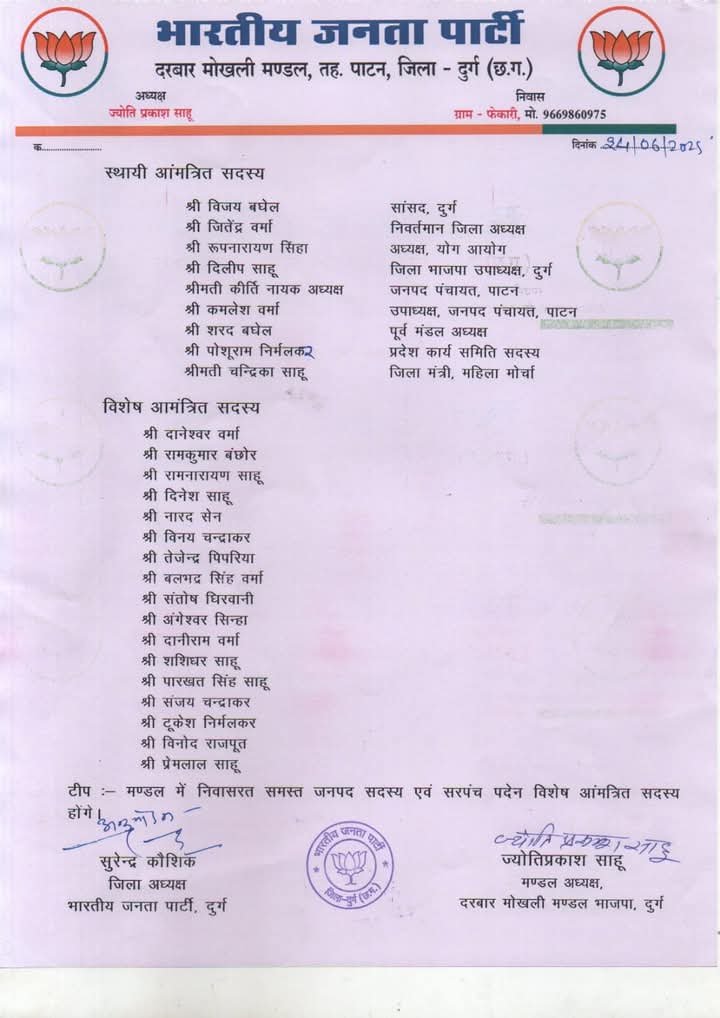 भारतीय जनता पार्टी
दरबार मोखली मण्डल, तह. पाटन, जिला - दुर्ग (छ.ग.)
अध्यक्ष निवास
ज्योति प्रकाश साहू ग्राम - फेकारी, मो. 9669860975
क........................ दिनांक 24/06/2025
स्थायी आंमत्रित सदस्य
श्री विजय बघेल सांसद, दुर्ग
श्री जितेंद्र वर्मा निवर्तमान जिला अध्यक्ष
श्री रूपनारायण सिंहा अध्यक्ष, योग आयोग
श्री दिलीप साहू जिला भाजपा उपाध्यक्ष, दुर्ग
श्रीमती कीर्ति नायक अध्यक्ष जनपद पंचायत, पाटन
श्री कमलेश वर्मा उपाध्यक्ष, जनपद पंचायत, पाटन
श्री शरद बघेल पूर्व मंडल अध्यक्ष
श्री पोशूराम निर्मलकर प्रदेश कार्य समिति सदस्य
श्रीमती चन्द्रिका साहू जिला मंत्री, महिला मोर्चा
विशेष आमंत्रित सदस्य
श्री दानेश्वर वर्मा
श्री रामकुमार बंछोर
श्री रामनारायण साहू
श्री दिनेश साहू
श्री नारद सेन
श्री विनय चन्द्राकर
श्री तेजेन्द्र पिपरिया
श्री बलभद्र सिंह वर्मा
श्री संतोष धिरवानी
श्री अंगेश्वर सिन्हा
श्री दानीराम वर्मा
श्री शशिधर साहू
श्री पारखत सिंह साहू
श्री संजय चन्द्राकर
श्री टूकेश निर्मलकर
श्री विनोद राजपूत
श्री प्रेमलाल साहू
टीप :– मण्डल में निवासरत समस्त जनपद सदस्य एवं सरपंच पदेन विशेष आंमत्रित सदस्य
होंगे।
ज्योति प्रकाश साहू
सुरेन्द्र कौशिक ज्योतिप्रकाश साहू
जिला अध्यक्ष मण्डल अध्यक्ष,
भारतीय जनता पार्टी, दुर्ग दरबार मोखली मण्डल भाजपा, दुर्ग
भारतीय जनता पार्टी
जिला-दुर्ग (छ.ग.)